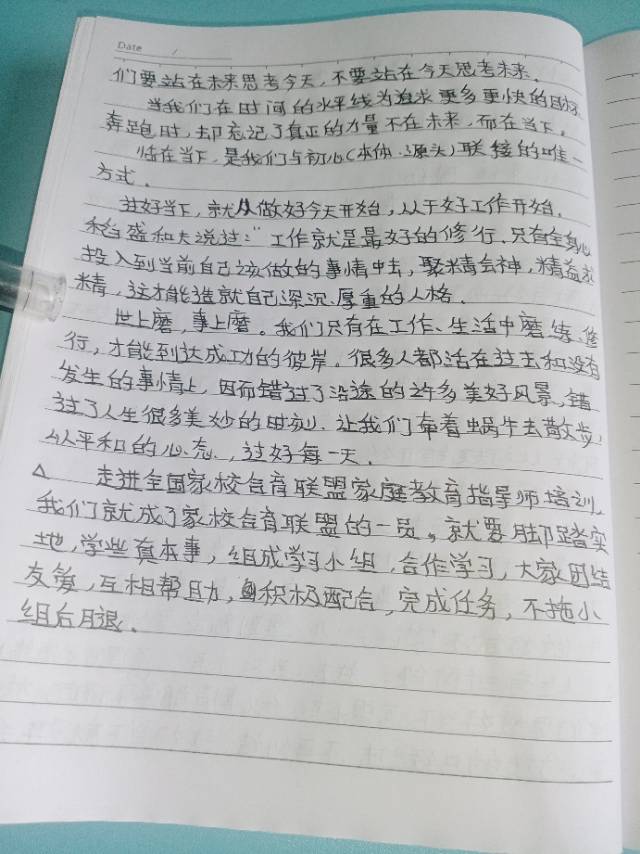 Date /
们要站在未来思考今天,不要站在今天思考未来。
当我们在时间的水平线为追求更多更快的目标
奔跑时,却忘记了真正的力量不在未来,而在当下。
活在当下,是我们与初心(本体、源头)联接的唯一
方式。
过好当下,就从做好今天开始,从干好工作开始。
稻盛和夫说过:"工作就是最好的修行,只有全身心
投入到当前自己该做的事情中去,聚精会神,精益求
精,这才能造就自己深沉、厚重的人格。
世上磨,事上磨。我们只有在工作、生活中磨练、修
行,才能到达成功的彼岸。很多人都活在过去和没有
发生的事情上,因而错过了沿途的许多美好风景,错
过了人生很多美妙的时刻。让我们牵着蜗牛去散步,
从平和的心态,过好每一天。
△ 走进全国家校合育联盟家庭教育指导师培训,
我们就成了家校合育联盟的一员。就要脚踏实
地,学些真本事,组成学习小组,合作学习,大家团结
友爱,互相帮助,积极配合,完成任务,不拖小
组后腿。